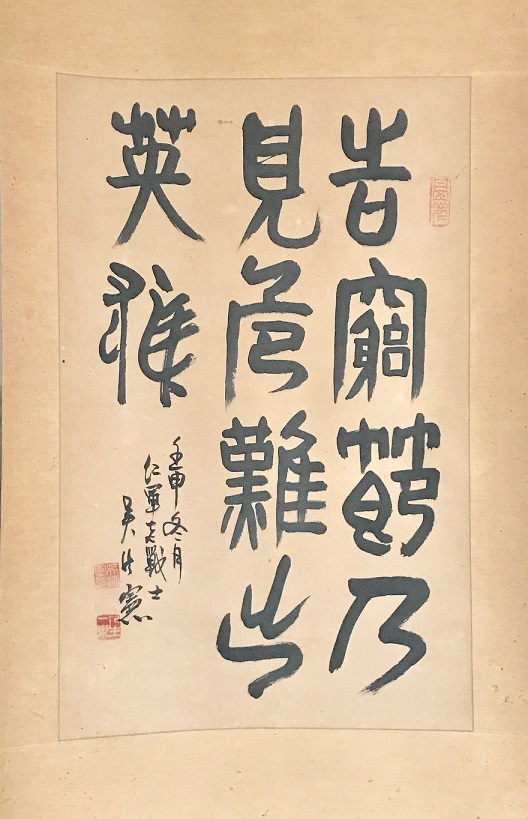 旹窮節乃
見危難出
英雄
壬申冬月
仁軍老戰士
吳憲